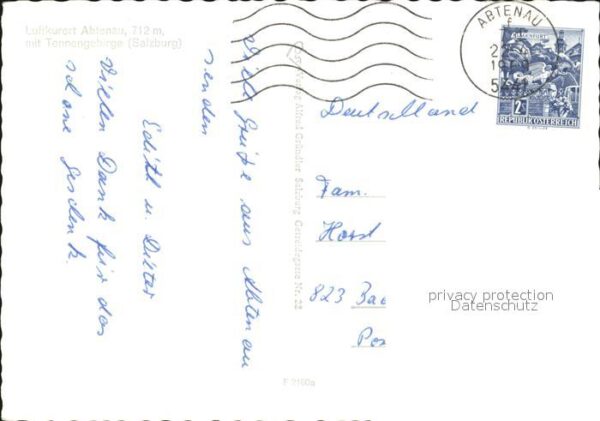 Luftkurort Abtenau, 712 m,
mit Tennengebirge (Salzburg)
Viele Grüße aus Abtenau
senden
Edith u. Dieter
Vielen Dank für das
schöne Geschenk.
Cosy-Verlag Alfred Gründler Salzburg Getreidegasse Nr. 22
F 2160a
ABTENAU
5441
2S
REPUBLIK ÖSTERREICH
Deutschland
Fam.
Horst
823 Bad
privacy protection
Datenschutz